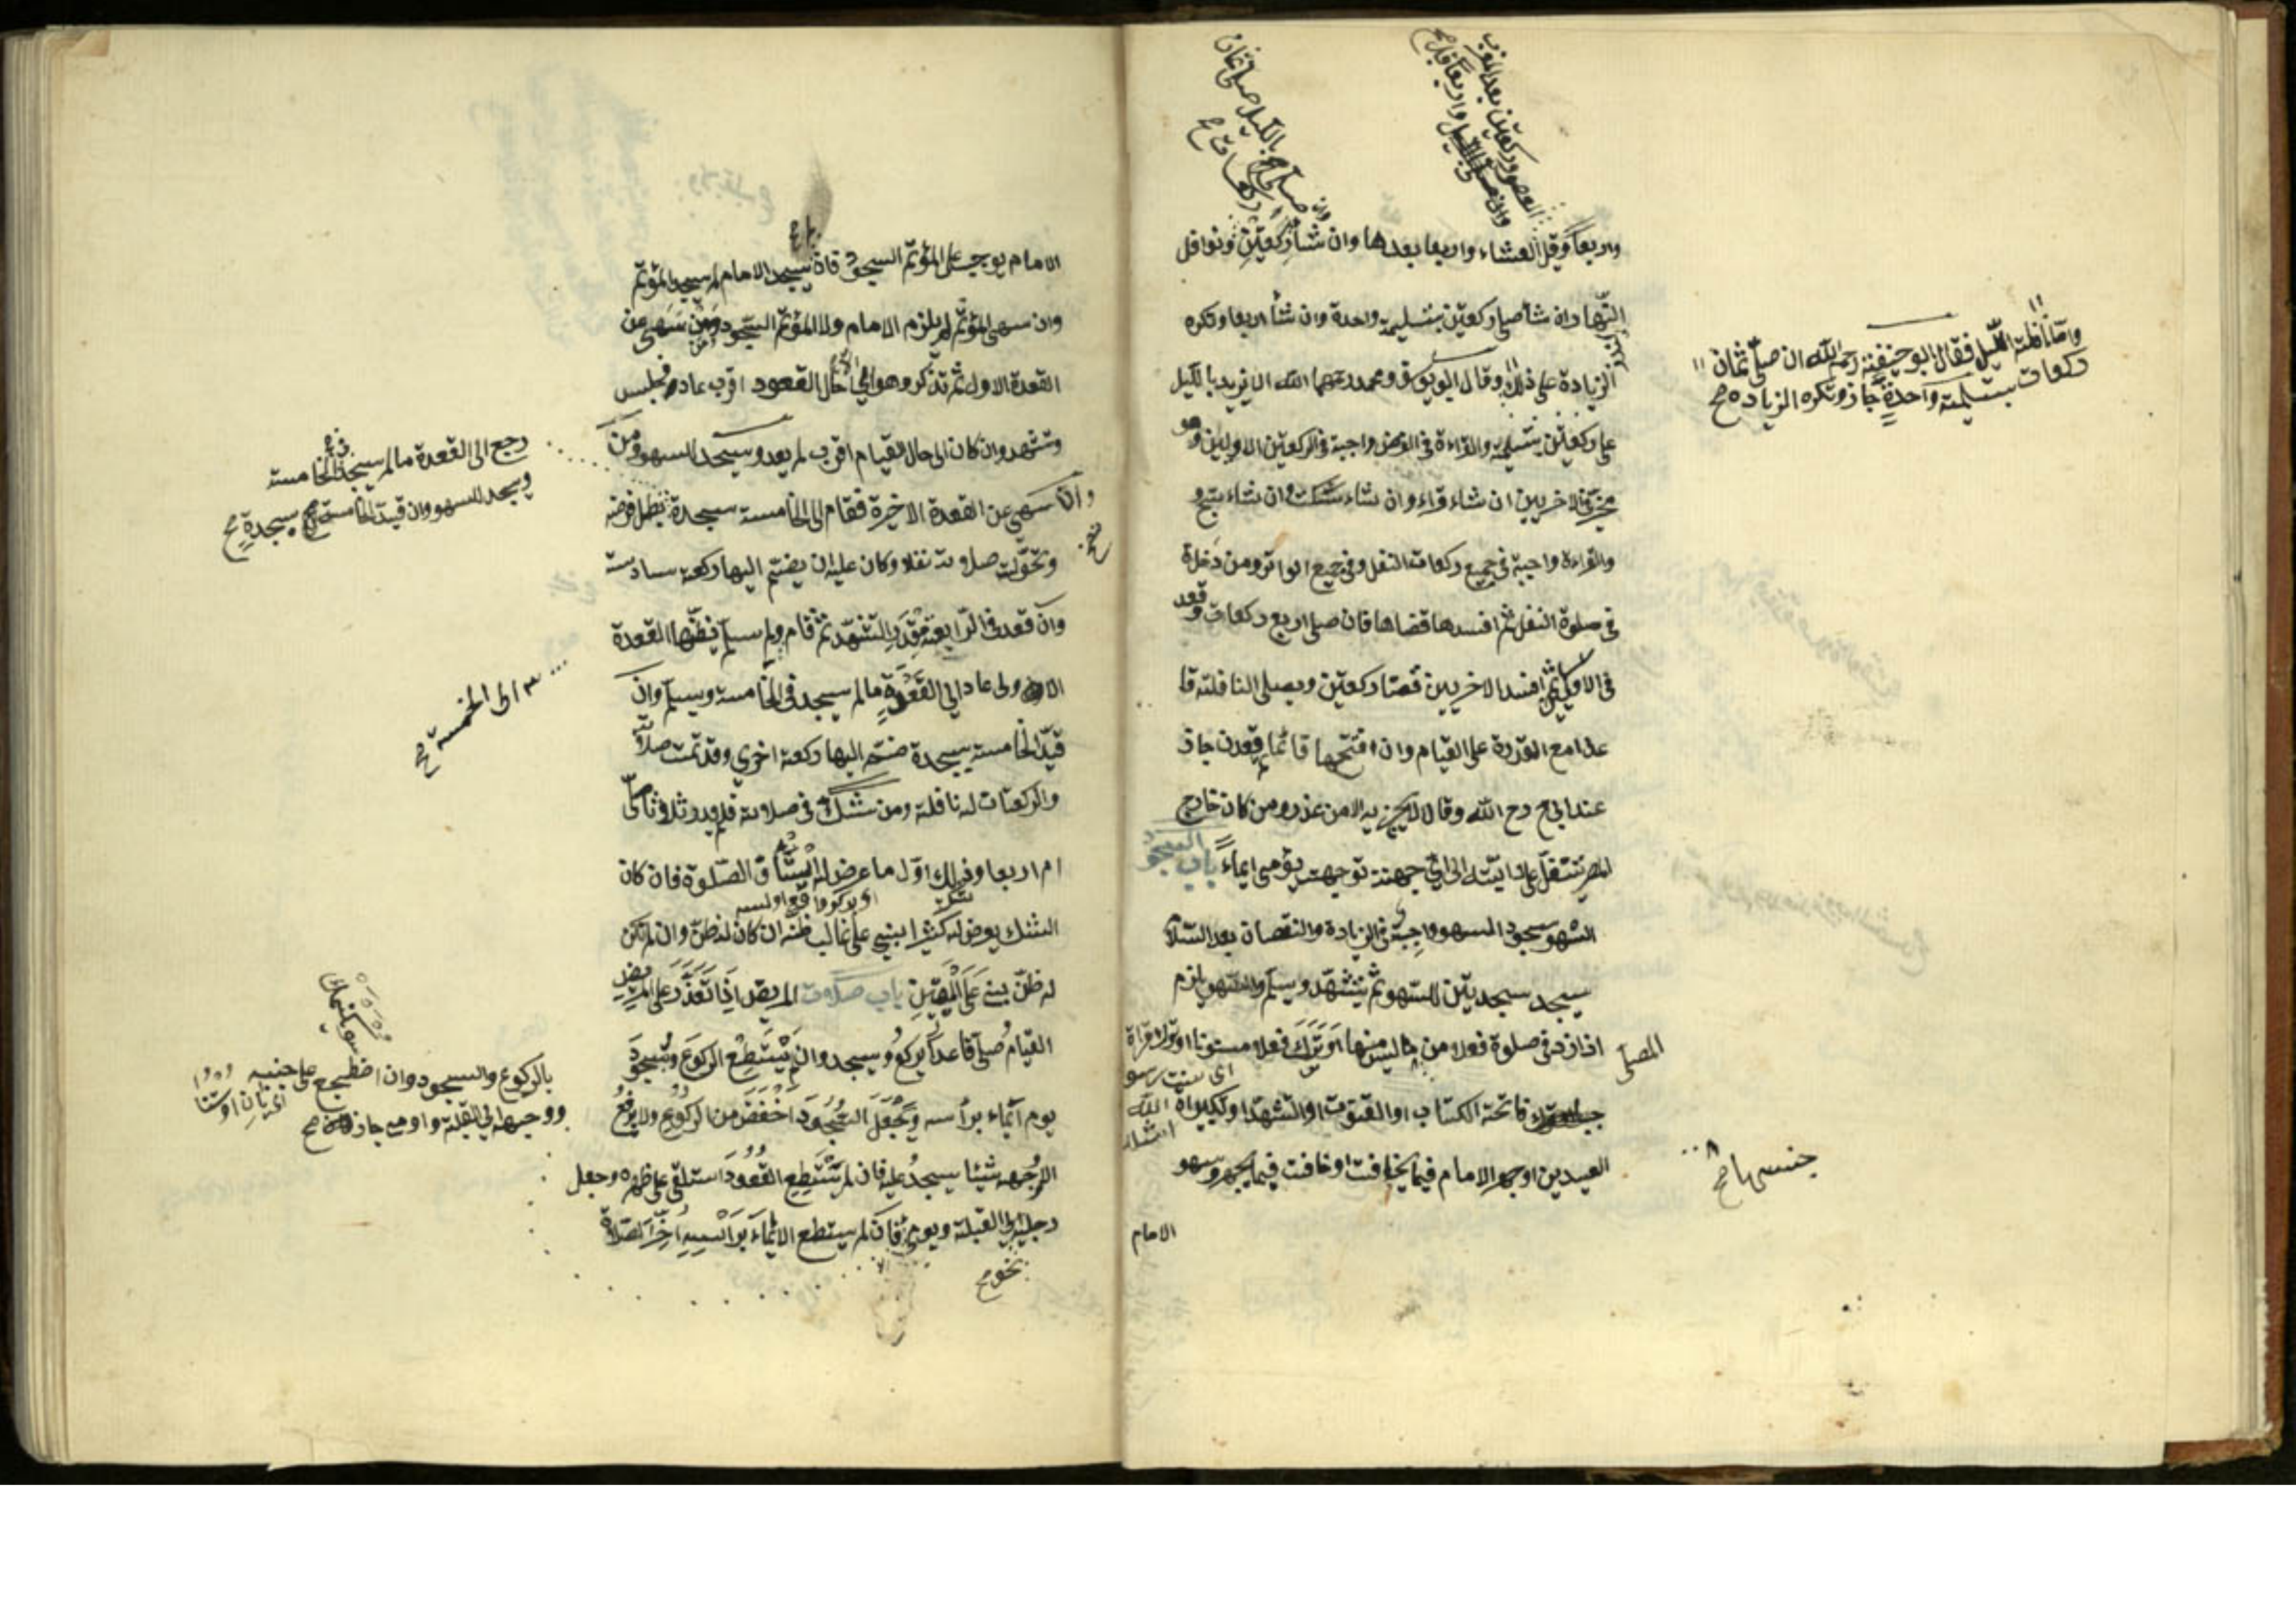 واربعا وقبل العشاء واربعا بعدها وان شاء ركعتين ونوافل
النهار ان شاء صلى ركعتين بتسليمة واحدة وان شاء اربعا وتكره
الزيادة على ذلك وقال ابو يوسف ومحمد رحمهما الله لا يزيد بالليل
على ركعتين بتسليمة والقراءة في الفرض واجبة في الركعتين الاوليين وهو
مخير في الاخريين ان شاء قراء وان شاء سكت وان شاء سبح و
والقراءة واجبة في جميع ركعات النفل وفي جميع الوتر ومن دخل
في صلوة النفل ثم افسدها قضاها فان صلى اربع ركعات وقعد
في الاوليين ثم افسد الاخريين قضا ركعتين ويصلي النافلة قا
عدا مع القدرة على القيام وان افتتحها قائما ثم قعد جاز
عند ابي ح رح الله وقالا لا يجزيه الا من عذر ومن كان خارج
المصر تنفل على دابته الى اي جهة توجهت يؤمي ايماء باب السجود
السهو سجود السهو واجبة في الزيادة والنقصان بعد السلام
سيجد سجدتين للسهو ثم يتشهد ويسلم والسهو يلزم
المصلي
اذا زاد في صلوة فعلا من جنسها ليس منها او ترك فعلا مسنونا او ترك قراءة
فاتحة الكتاب او القنوت او التشهد او تكبيرات
العيدين او جهر الامام فيما يخافت او خافت فيما يجهر وسهو
الامام
واما نافلة الليل فقال ابو حنيفة رحمه الله ان صلى ثمان
ركعات بتسليمة واحدة جاز وتكره الزيادة ح
الامام يوجب على المؤتم السجود فان لم سيجد الامام لم سيجد المؤتم
وان سهى المؤتم لم يلزم الامام ولا المؤتم السجود ومن سهى عن
القعدة الاولى ثم تذكر وهو الى حال القعود اقرب عاد فجلس
وتشهد وان كان الى حال القيام اقرب لم يعد وسيجد للسهو ومن
سهى عن القعدة الاخيرة فقام الى الخامسة سيجدة بطل فرضه
وتحولت صلاوته نفلا وكان عليه ان يضم اليها ركعة سادسة
وان قعد في الرابعة مقدار التشهد ثم قام ولم سيلم فظنها القعدة
الاولى عاد الى القعدة ما لم سيجد في الخامسة وسيلم وان
قيد الخامسة بسيجدة ضم اليها ركعة اخرى وقد تمت صلاته
والركعتان له نافلة ومن شك في صلاته فلم يدر ثلاثا صلى
ام اربعا وذلك اول ما عرض له استانف الصلوة فان كان
الشك يعرض له كثيرا يبني على غالب ظنه ان كان له ظن وان لم يكن
له ظن يبنى على اليقين باب صلاوت المريض اذا تعذر على المريض
القيام صلى قاعدا يركع وسيجد وان لم يستطع الركوع والسجود
يوم ايماء براسه ويجعل السجود اخفض من الركوع ولا يرفع
الى وجهه شيئا سيجد عليه فان لم يستطع القعود استلقى على ظهره وجعل
رجليه الى القبلة ويومي فان لم سيتطع الايماء براسه اخر الصلاة
رجع الى القعدة ما لم سيجد في الخامسة
ويسجد للسهو وان قيد الخامسة بسيجدة ح
بالركوع والسجود وان اضطجع على جنبه
ووجهه الى القبلة واومى جاز ح